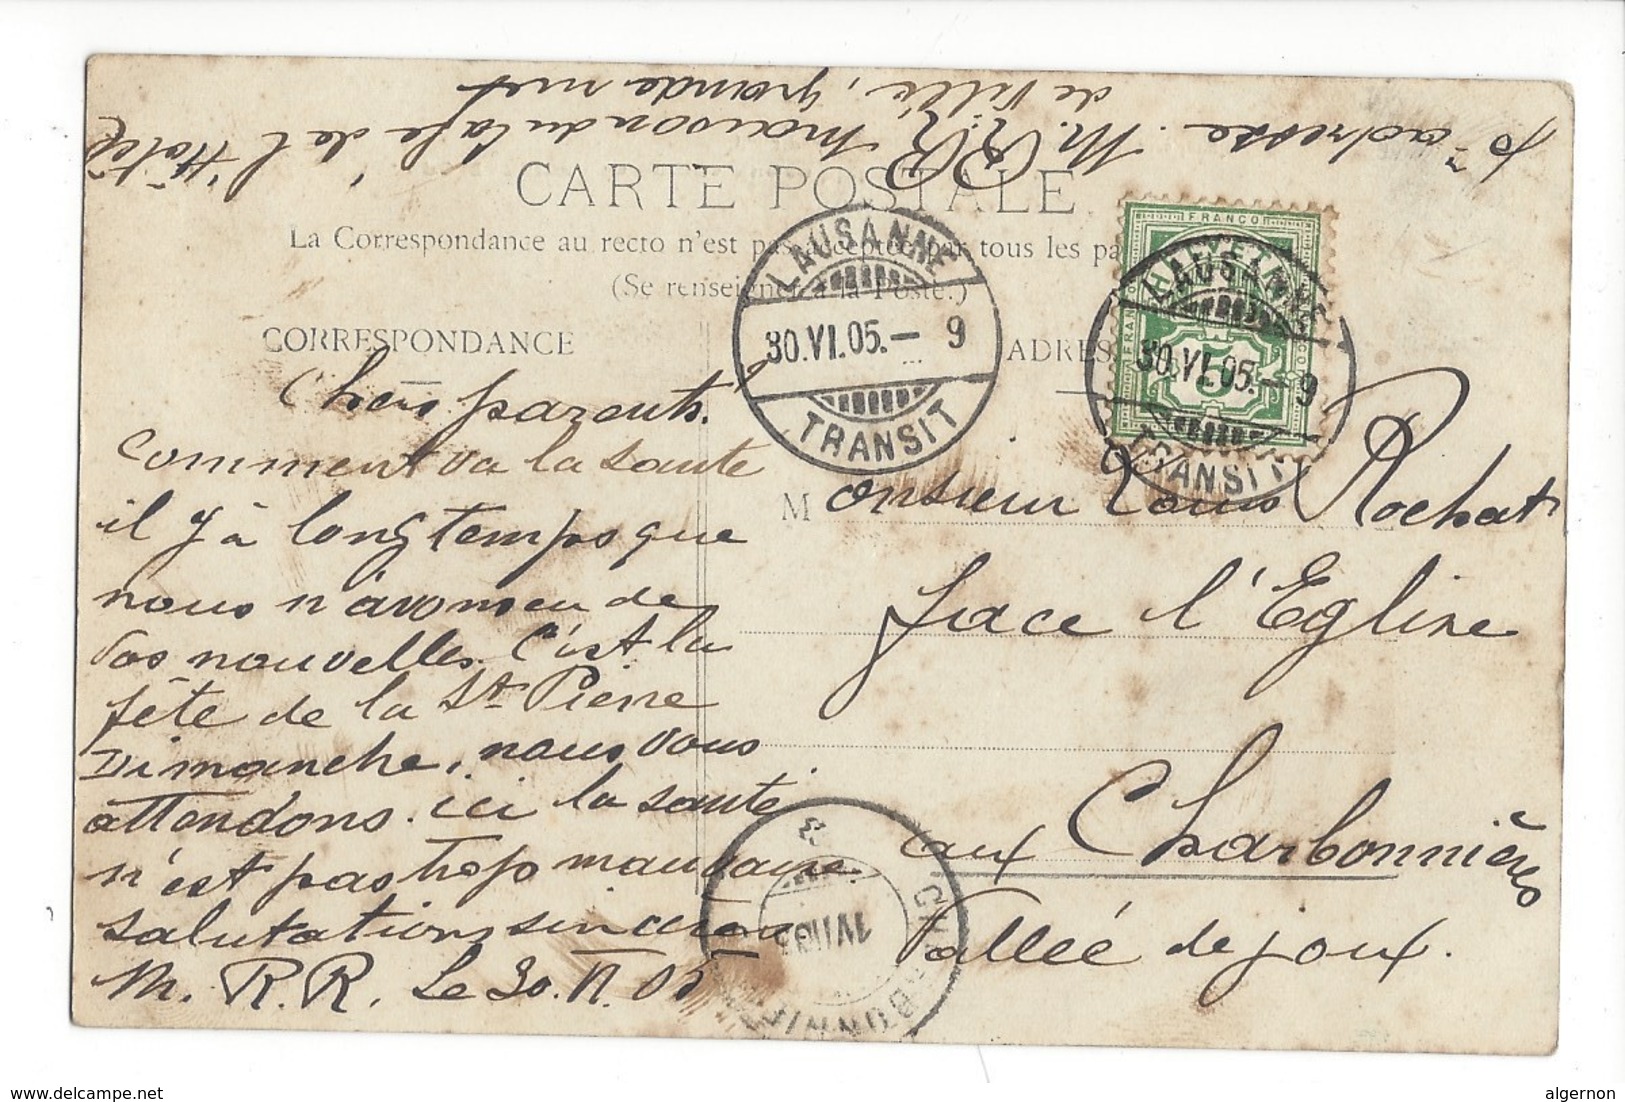 p. adresse. M. R.R Maison du Cafe de l'Hôtel
de Ville, grande rue
CARTE POSTALE
La Correspondance au recto n'est pas acceptée par tous les pa
(Se renseigner à la Poste.)
CORRESPONDANCE
ADRES
LAUSANNE
30.VI.05.— 9
TRANSIT
FRANCO
HELVETIA
5
LAUSANNE
30.VI.05.— 9
TRANSIT
Chers parents.
Comment va la santé
il y à longtemps que
nous n'avons eu de
vos nouvelles. C'est la
fête de la St Pierre
Dimanche, nous vous
attendons. ici la santé
n'est pas trop mauvaise.
salutations sincères
M. R. R. Le 30. VI. 05
Monsieur Louis Rochat
face l'Eglise
aux Charbonnières
Vallée de joux.
delcampe.net
algernon